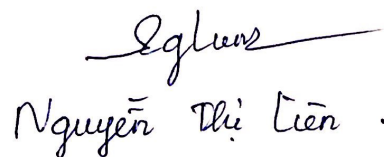 Nguyễn Thị Liên.